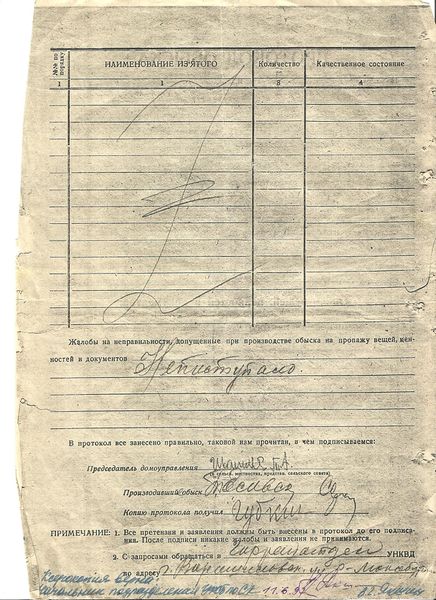 №№ по порядку НАИМЕНОВАНИЕ ИЗ'ЯТОГО Количество Качественное состояние
1 1 3 4
Жалобы на неправильности, допущенные при производстве обыска на пропажу вещей, цен-
ностей и документов Непоступало.
В протокол все занесено правильно, таковой нам прочитан, в чем подписываемся:
Председатель домоуправления
(в сельск. местностях, председ. сельского совета)
Производивший обыск
Копию протокола получил Губкин
ПРИМЕЧАНИЕ: 1. Все претензии и заявления должны быть внесены в протокол до его подписа-
ния. После подписи никакие жалобы и заявления не принимаются.
2. С запросами обращаться в УНКВД
по адресу
Ксерокопия верна:
начальник подразделения 11.6.97